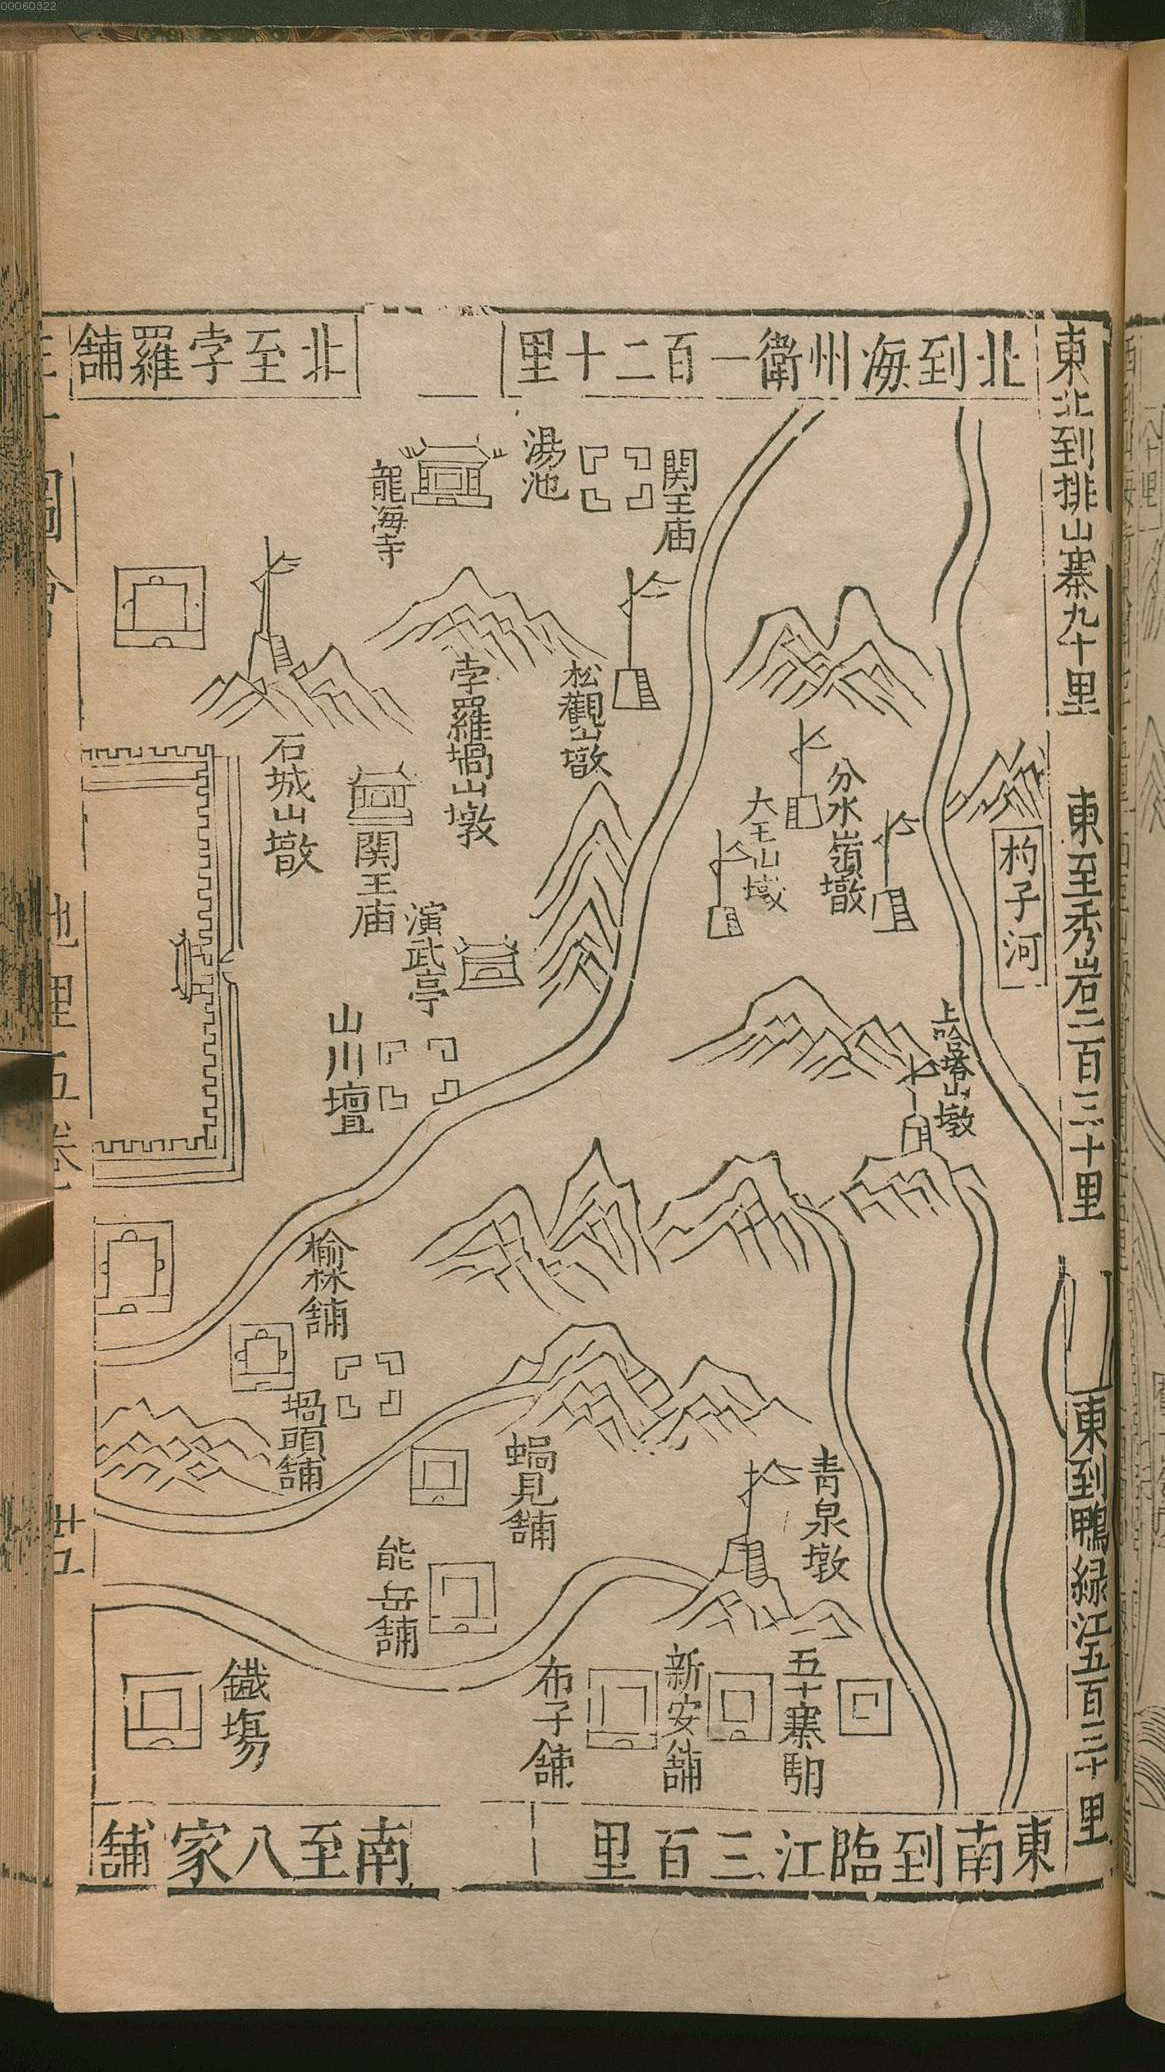 00060322
東北到排山寨九十里
東至秀岩二百三十里
東到鴨緑江五百三十里
北到海州衛一百二十里
北至孛羅舖
関王庙
湯池
龍海寺
松觀山墩
孛羅堝山墩
石城山墩
分水嶺墩
大王山墩
杓子河
関王庙
演武亭
山川壇
上哈塔山墩
榆林舖
堝頭舖
蝸見舖
青泉墩
能岳舖
五十寨駅
新安舖
布子舖
鐵塲
東南到臨江三百里
南至八家舖
地理五卷
廿五